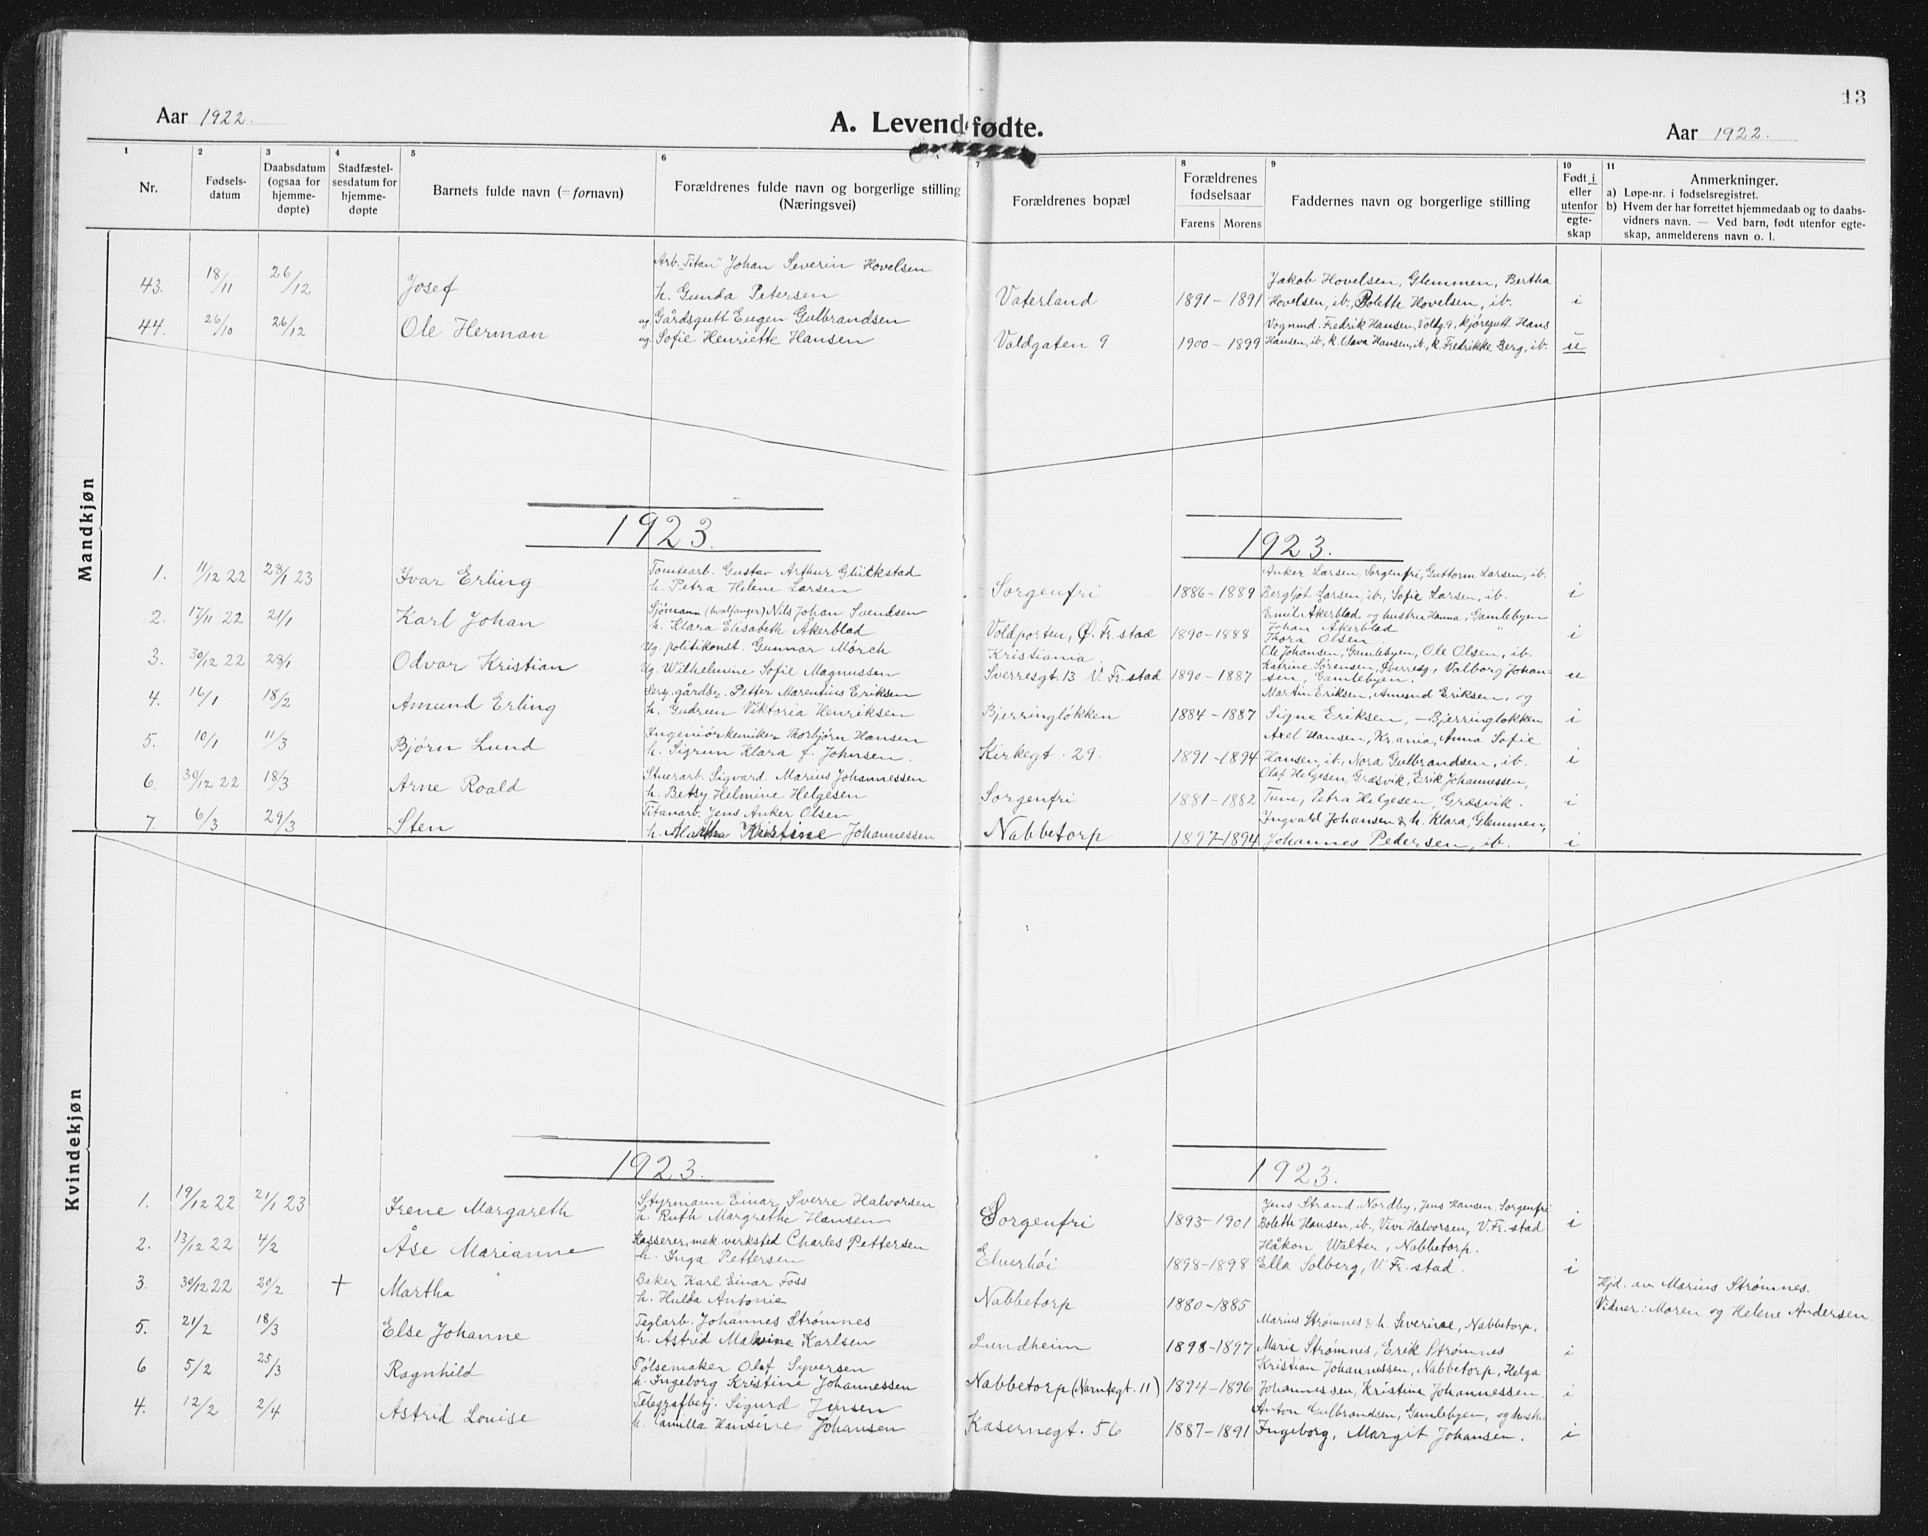 13
Aar 1922.
A. Levendefødte.
Aar 1922.
1 2 3 4 5 6 7 8 9 10 11
Nr.
Fødsels-
datum
Daabsdatum
(ogsaa for
hjemme-
døpte)
Stadfæstel-
sesdatum for
hjemme-
døpte
Barnets fulde navn (= fornavn)
Forældrenes fulde navn og borgerlige stilling
(Næringsvei)
Forældrenes bopæl
Forældrenes
fødselsaar
Farens Morens
Faddernes navn og borgerlige stilling
Født i
eller
utenfor
egte-
skap
Anmerkninger.
a) Løpe-nr. i fødselsregistret.
b) Hvem der har forrettet hjemmedaab og to daabs-
vidners navn. — Ved barn, født utenfor egte-
skap, anmelderens navn o. l.
Mandkjøn
Arb. "Titan" Johan Severin Hovelsen
Jakob Hovelsen, Glemmen, Bertha
43. 18/11 26/12 Josef h. Gunda Petersen Vaterland 1891-1891 Hovelsen, ib, Polette Hovelsen, ib. i
ug. Gårdsgutt Eugen Gulbrandsen
Vognmd. Fredrik Hansen, Voldg. 9, kjøregutt Hans
44. 26/10 26/12 Ole Herman ug. Sofie Henriette Hansen Voldgaten 9 1900-1899 Hansen, ib, k. Olava Hansen, ib, k. Fredrikke Berg, ib. u
1923. 1923.
Tomtearb. Gustav Arthur Glückstad
Anker Larsen, Sorgenfri, Guttorm Larsen, ib.
1. 11/12 22 28/1 23 Ivar Erling h. Petra Helene Larsen Sorgenfri 1886-1889 Bergljot Larsen, ib, Sofie Larsen, ib. i
Sjømann (hvalfanger) Nils Johan Svendsen
Emil Akerblad og hustru Hanna, Gamlebyen
Johan Akerblad "
2. 17/11 22 21/1 Karl Johan h. Klara Elisabeth Akerblad Voldporten, Ø. Fr.stad 1890-1888 Thora Olsen i
Ug. politikonst. Gunnar Mörch Kristiania.
Ole Johansen, Gamlebyen, Ole Olsen, ib.
Katrine Sørensen, Sverresg, Valborg Johan-
3. 30/12 22 28/1 Odvar Kristian Ug. Wilhelmine Sofie Magnussen Sverresgt. 13 V. Fr.stad 1890-1887 sen, Gamlebyen. u
gårdbr. Petter Marentius Eriksen
Martin Eriksen, Amund Eriksen, og
4. 16/1 18/2 Amund Erling h. Gudrun Viktoria Henriksen Bjerringløkken 1884-1887 Signe Eriksen, — Bjerringløkken i
Ingeniörkemiker Thorbjørn Hansen
Axel Hansen, Kr.ania, Anna Sofie
5. 10/1 11/3 Bjørn Lund h. Sigrun Klara f. Johnsen. Kirkegt. 29. 1891-1894 Hansen, ib, Nora Gulbrandsen, ib. i
Stuerarb. Sigvard Marius Johannessen
Olaf Helgesen, Græsvik, Erik Johannessen,
6. 30/12 22 18/3 Arne Roald h. Betsy Helmine Helgesen Sorgenfri 1881-1882 Tune, Petra Helgesen, Græsvik. i
Titanarb. Jens Anker Olsen
Ingvald Johansen & h. Klara, Glemmen,
7 6/3 29/3 Sten h. Martha Kristine Johannessen Nabbetorp 1897-1894 Johannes Pedersen, ib. i
Kvindekjøn
1923. 1923.
Styrmann Einar Sverre Halvorsen
Jens Strand, Nordby, Jens Hansen, Sorgenfri
1. 19/12 22 21/1 23 Irene Margareth h. Ruth Margrethe Hansen Sorgenfri 1893-1901 Bolette Hansen, ib, Vivi Halvorsen, V. Fr.stad i
Kasserer, mek verksted Charles Pettersen
Håkon Walter, Nabbetorp.
2. 13/12 22 4/2 Åse Marianne h. Inga Pettersen Elverhöi 1898-1898 Ella Solberg, V. Fr.stad. i
Baker Karl Einar Foss
Hjd. av Marius Strømnes.
3. 30/12 22 20/2 + Martha h. Hulda Antonie Nabbetorp 1880-1885 Vidner: Maren og Helene Andersen.
Teglarb. Johannes Strømnes
Marius Strømnes & h. Severine, Nabbetorp,
5. 21/2 18/3 Else Johanne h. Astrid Malvine Karlsen Lundheim 1898-1897 Marie Strømnes, Erik Strømnes i
Pølsemaker Olaf Syversen
Kristian Johannessen, Nabbetorp, Helga
6 5/2 25/3 Ragnhild h. Ingeborg Kristine Johannessen Nabbetorp (11) 1894-1896 Johannessen, Kristine Johannessen. i
Telegrafbetj. Sigurd Jensen
Anton Gulbrandsen, Gamlebyen, og hustr
4. 12/2 2/4 Astrid Louise h. Camilla Hansine Johansen Kasernegt. 56 1887-1891 Ingeborg, Margit Johansen. i